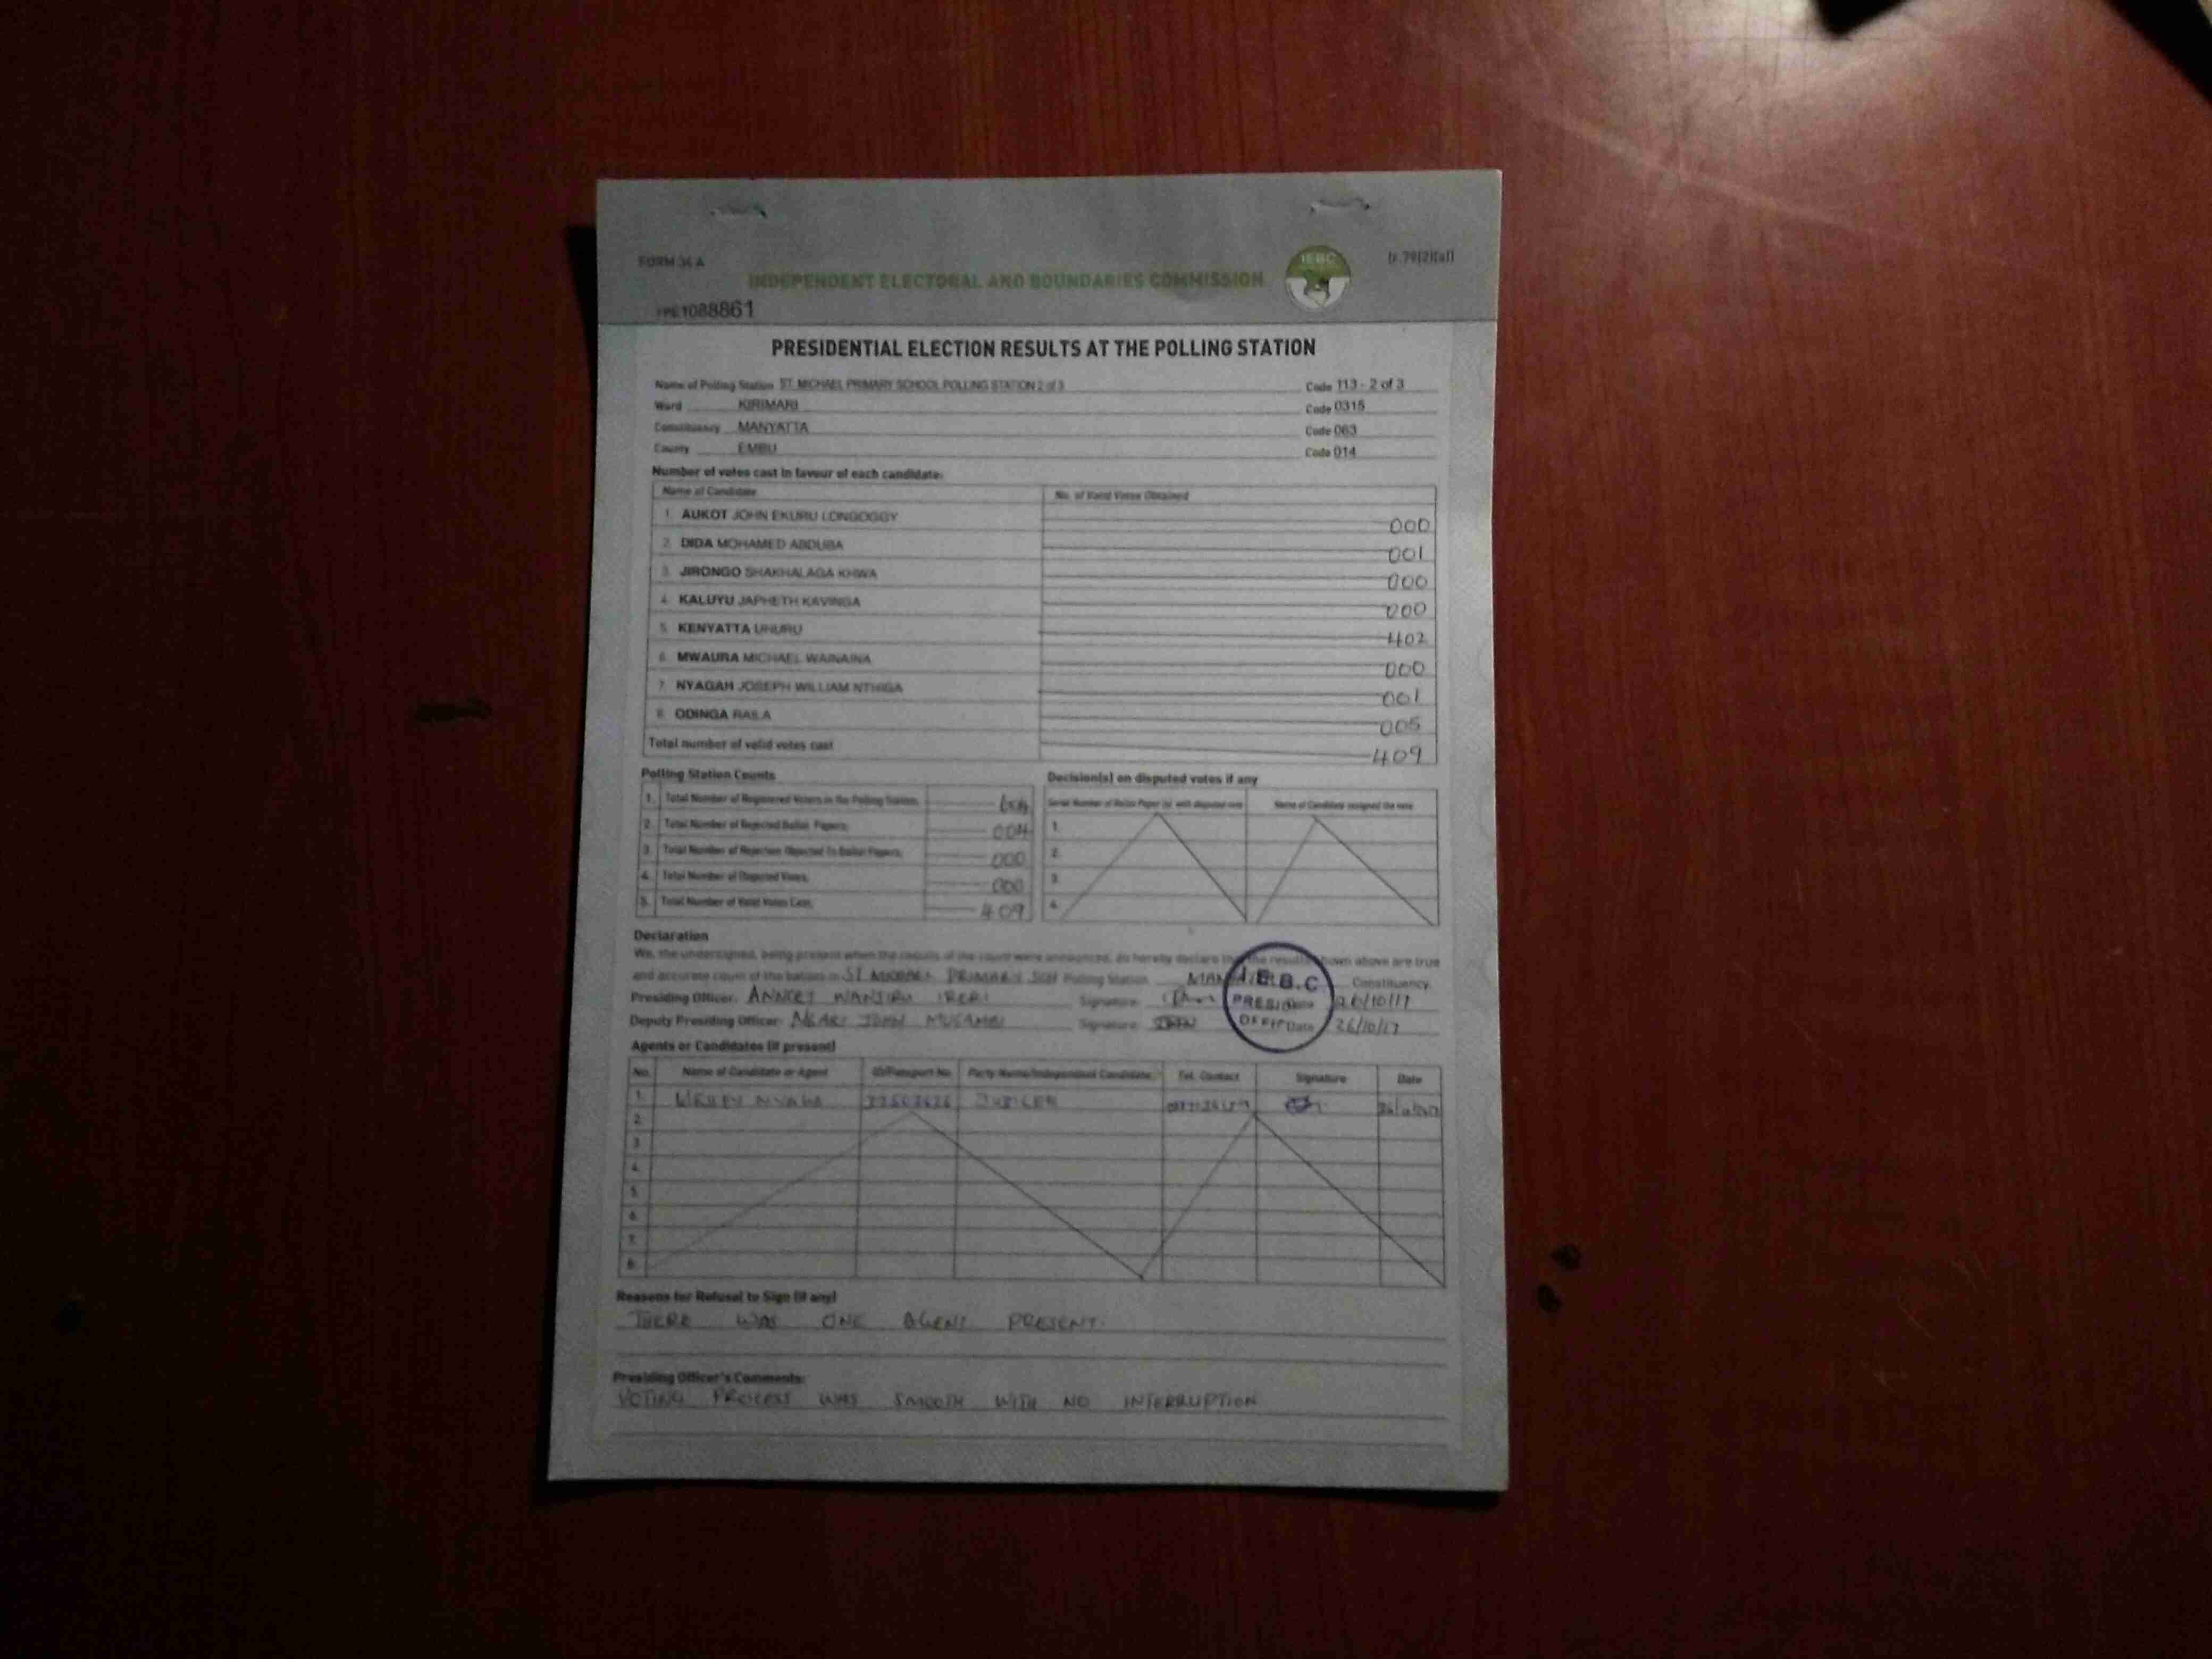 FORM 34 A
(r.79(2)(a))
INDEPENDENT ELECTORAL AND BOUNDARIES COMMISSION
IEBC
1088861
PRESIDENTIAL ELECTION RESULTS AT THE POLLING STATION
Name of Polling Station ST. MICHAEL PRIMARY SCHOOL POLLING STATION 2 of 3 Code 113 - 2 of 3
Ward KIRIMARI Code 0315
Constituency MANYATTA Code 063
County EMBU Code 014
Number of votes cast in favour of each candidate:
Name of Candidate No. of Valid Votes Obtained
1. AUKOT JOHN EKURU LONGOGGY 000
2. DIDA MOHAMED ABDUBA 001
3. JIRONGO SHAKHALAGA KHWA 000
4. KALUYU JAPHETH KAVINGA 000
5. KENYATTA UHURU 402
6. MWAURA MICHAEL WAINAINA 000
7. NYAGAH JOSEPH WILLIAM NTHIGA 001
8. ODINGA RAILA 005
Total number of valid votes cast 409
Polling Station Counts
1. Total Number of Registered Voters in the Polling Station
2. Total Number of Rejected Ballot Papers; 004
3. Total Number of Rejection Objected To Ballot Papers; 000
4. Total Number of Disputed Votes; 000
5. Total Number of Valid Votes Cast; 409
Decision(s) on disputed votes if any
Serial Number of Ballot Paper (s) with disputed vote Name of Candidate assigned the vote
1.
2.
3.
4.
Declaration
We, the undersigned, being present when the results of the count were announced, do hereby declare that the results shown above are true
and accurate count of the ballots in ST MICHAEL PRIMARY Polling Station Constituency.
Presiding Officer: WANJIRU IRERI Signature: Date 26/10/17
Deputy Presiding Officer: JOHN Signature: Date 26/10/17
I.E.B.C
PRESIDING
OFFICER
Agents or Candidates (if present)
No. Name of Candidate or Agent ID/Passport No. Party Name/Independent Candidate Tel. Contact Signature Date
1. JUBILEE
2.
3.
4.
5.
6.
7.
8.
Reasons for Refusal to Sign (if any)
THERE WAS ONE AGENT PRESENT.
Presiding Officer's Comments:
VOTING PROCESS WAS SMOOTH WITH NO INTERRUPTION